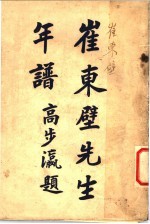 崔東壁
崔東壁先生
年譜
高步瀛題